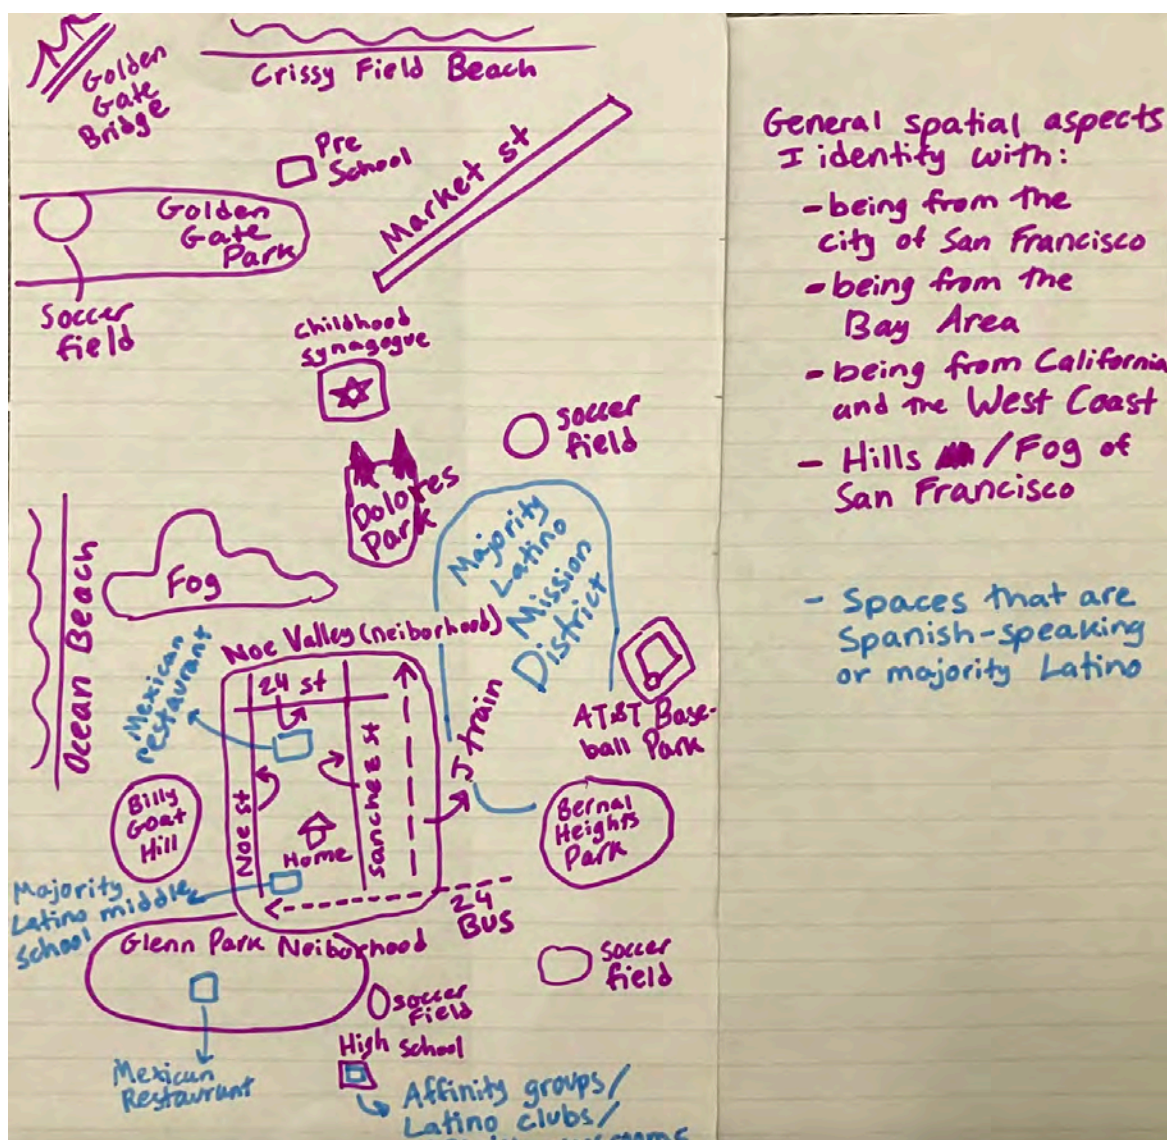 Golden
Gate
Bridge
Crissy Field Beach
Pre
School
Market st
Golden
Gate
Park
Soccer
field
Childhood
synagogue
soccer
field
Dolores
Park
Majority
Latino
Mission
District
Ocean Beach
Fog
Mexican
restaurant
Noe Valley (neiborhood)
24 st
Noe st
Sanchez st
Home
J train
AT&T Base-
ball Park
Billy
Goat
Hill
Bernal
Heights
Park
Majority
Latino middle
school
24
BUS
Glenn Park Neiborhood
soccer
field
soccer
field
High school
Mexican
Restaurant
Affinity groups/
Latino clubs/
General spatial aspects
I identity with:
- being from the
city of San Francisco
- being from the
Bay Area
- being from California
and the West Coast
- Hills /Fog of
San Francisco
- Spaces that are
Spanish-speaking
or majority Latino